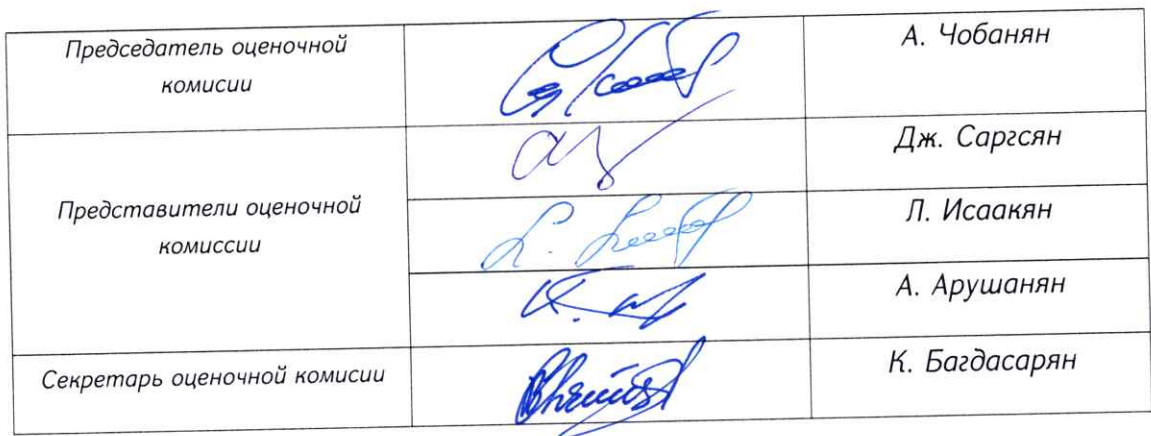 Председатель оценочной
комисии
А. Чобанян
Представители оценочной
комиссии
Дж. Саргсян
Л. Исаакян
А. Арушанян
Секретарь оценочной комисии
К. Багдасарян